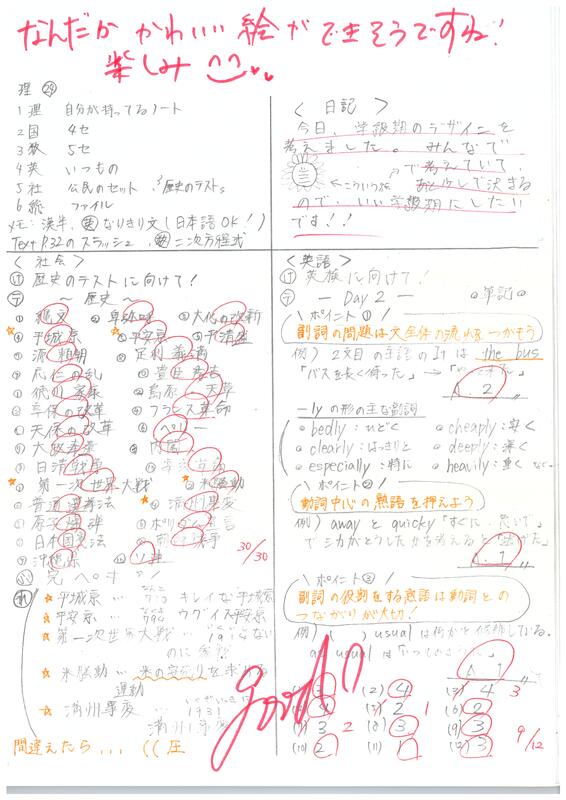 なんだか かわいい 絵が できそうですね!
楽しみ
理 ㉙
1 理 自分が持ってるノート
2 国 4セ
3 数 5セ
4 英 いつもの
5 社 公民のセット 歴史のテスト
6 総 ファイル
メモ: 漢半, 英 なりきり文(日本語OK!)
Text P.32のスラッシュ, 数 二次方程式
< 日記 >
今日、学級旗のデザインを
考えました。みんなで
で考えていて、
←こういうのを
決まる
ので、いい学級旗にしたい
です!!
< 社会 >
け 歴史のテストに向けて!
テ 〜 歴史 〜
縄文 卑弥呼 大化の改新
平城京 平安京 平清盛
源頼朝 足利義満
応仁の乱 豊臣秀吉
徳川家康 島原 天草
享保の改革 フランス革命
天保の改革 ペリー
大政奉還
日清戦争
第一次世界大戦 米騒動
普通選挙法 満州事変
原子爆弾 ポツダム宣言
日本国憲法
沖縄県
30/30
★平城京 … 710 キレイな平城京
★平安京 … 794 ウグイス平安京
★第一次世界大戦 …
★米騒動 … 米の安売りを求める
運動
★満州事変 … 1931
満州事変
間違えたら...
< 英語 >
け 英検に向けて!
テ — Day 2 — 単記
\ ポイント① /
副詞の問題は文全体の流れをつかもう
例) 2文目の主語のItは the bus
「バスを長く待った」→
A. 2
—lyの形の主な副詞
bedly:ひどく cheaply:安く
clearly:はっきりと deeply:深く
especially:特に heavily:重く
\ ポイント② /
動詞中心の熟語を押えよう
例) away と quicky「すぐに、急いで」
でシカがどうしたかを考えると「逃げた」
A. 1
\ ポイント③ /
副詞の役割をする熟語は動詞との
つながりが大切!
例) ( ) usual は何かと
as usual は「いつものように」
A. 1
good!!
(1) 3 (2) 4 (3) 4 3
(4) 4 (5) 2 1 (6) 2
(7) 3 2 (8) 3 (9) 3
(10) 2 (11) 1 (12) 3
9/12